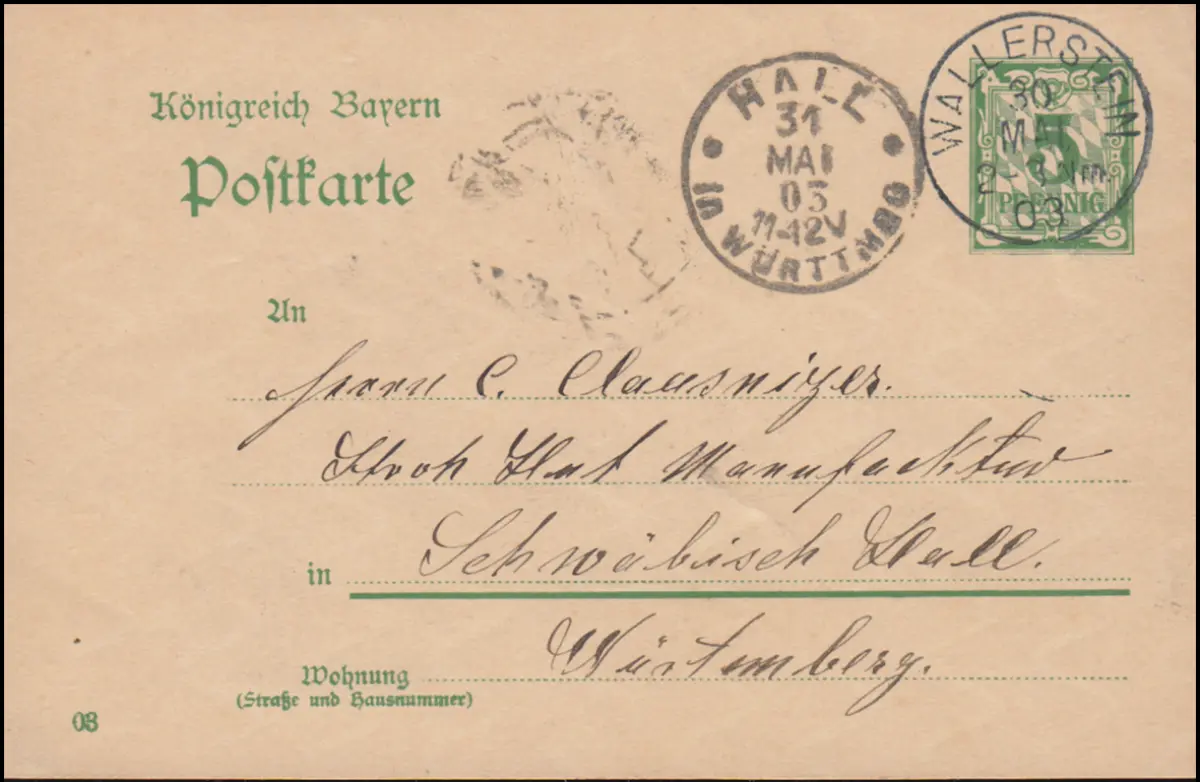 Königreich Bayern
Postkarte
HALL
31
MAI
03
11-12V
in WÜRTTMBG
WALLERSTEIN
30
MAI
Nm.
03
5
PFENNIG
An
Herrn C. Clausnizer.
Stroh Hut Manufacktur
in Schwäbisch Hall.
Würtemberg.
Wohnung
(Straße und Hausnummer)
03